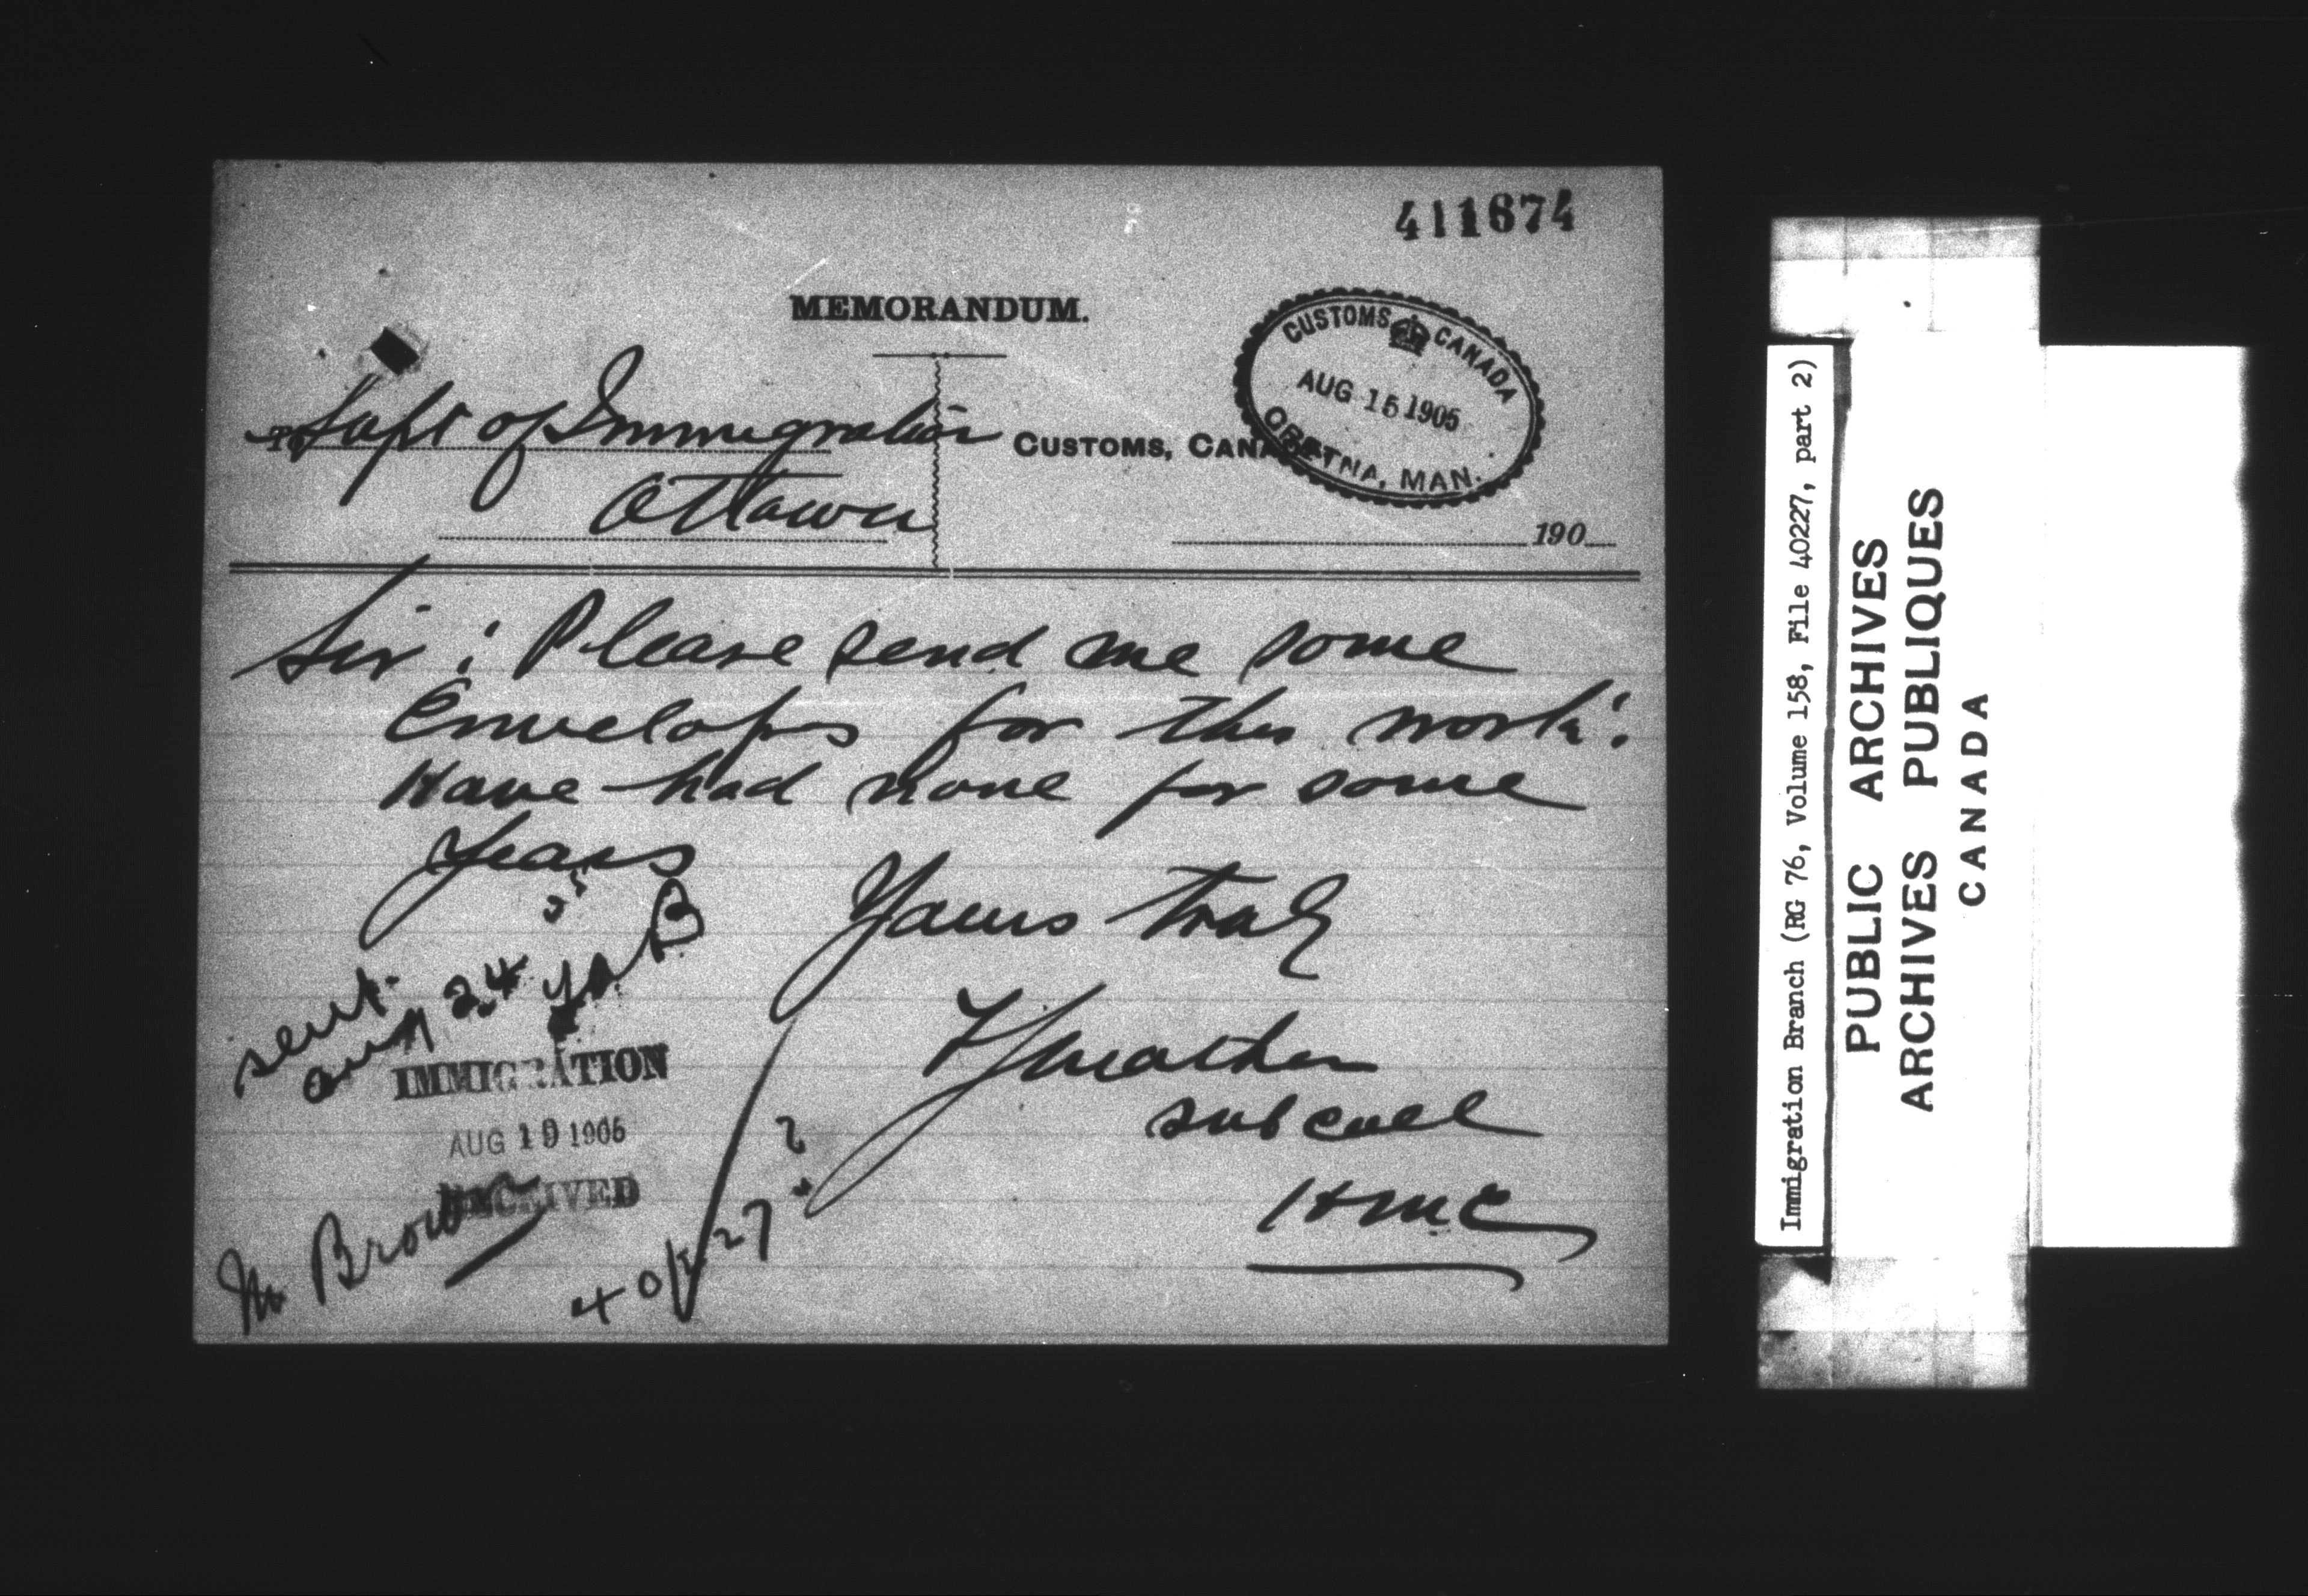 411674
MEMORANDUM.
To Supt of Immigration
Ottawa
CUSTOMS, CANA
CUSTOMS CANADA
AUG 15 1905
GRETNA, MAN.
190
Sir: Please send me some
Envelopes for this work:
Have had none for some
years
Yours truly
sub coll
HMC
sent
Aug 24
IMMIGRATION
AUG 19 1905
RECEIVED
Mr Brown
40227
2
Immigration Branch (RG 76, Volume 158, File 40227, part 2)
PUBLIC ARCHIVES
ARCHIVES PUBLIQUES
CANADA